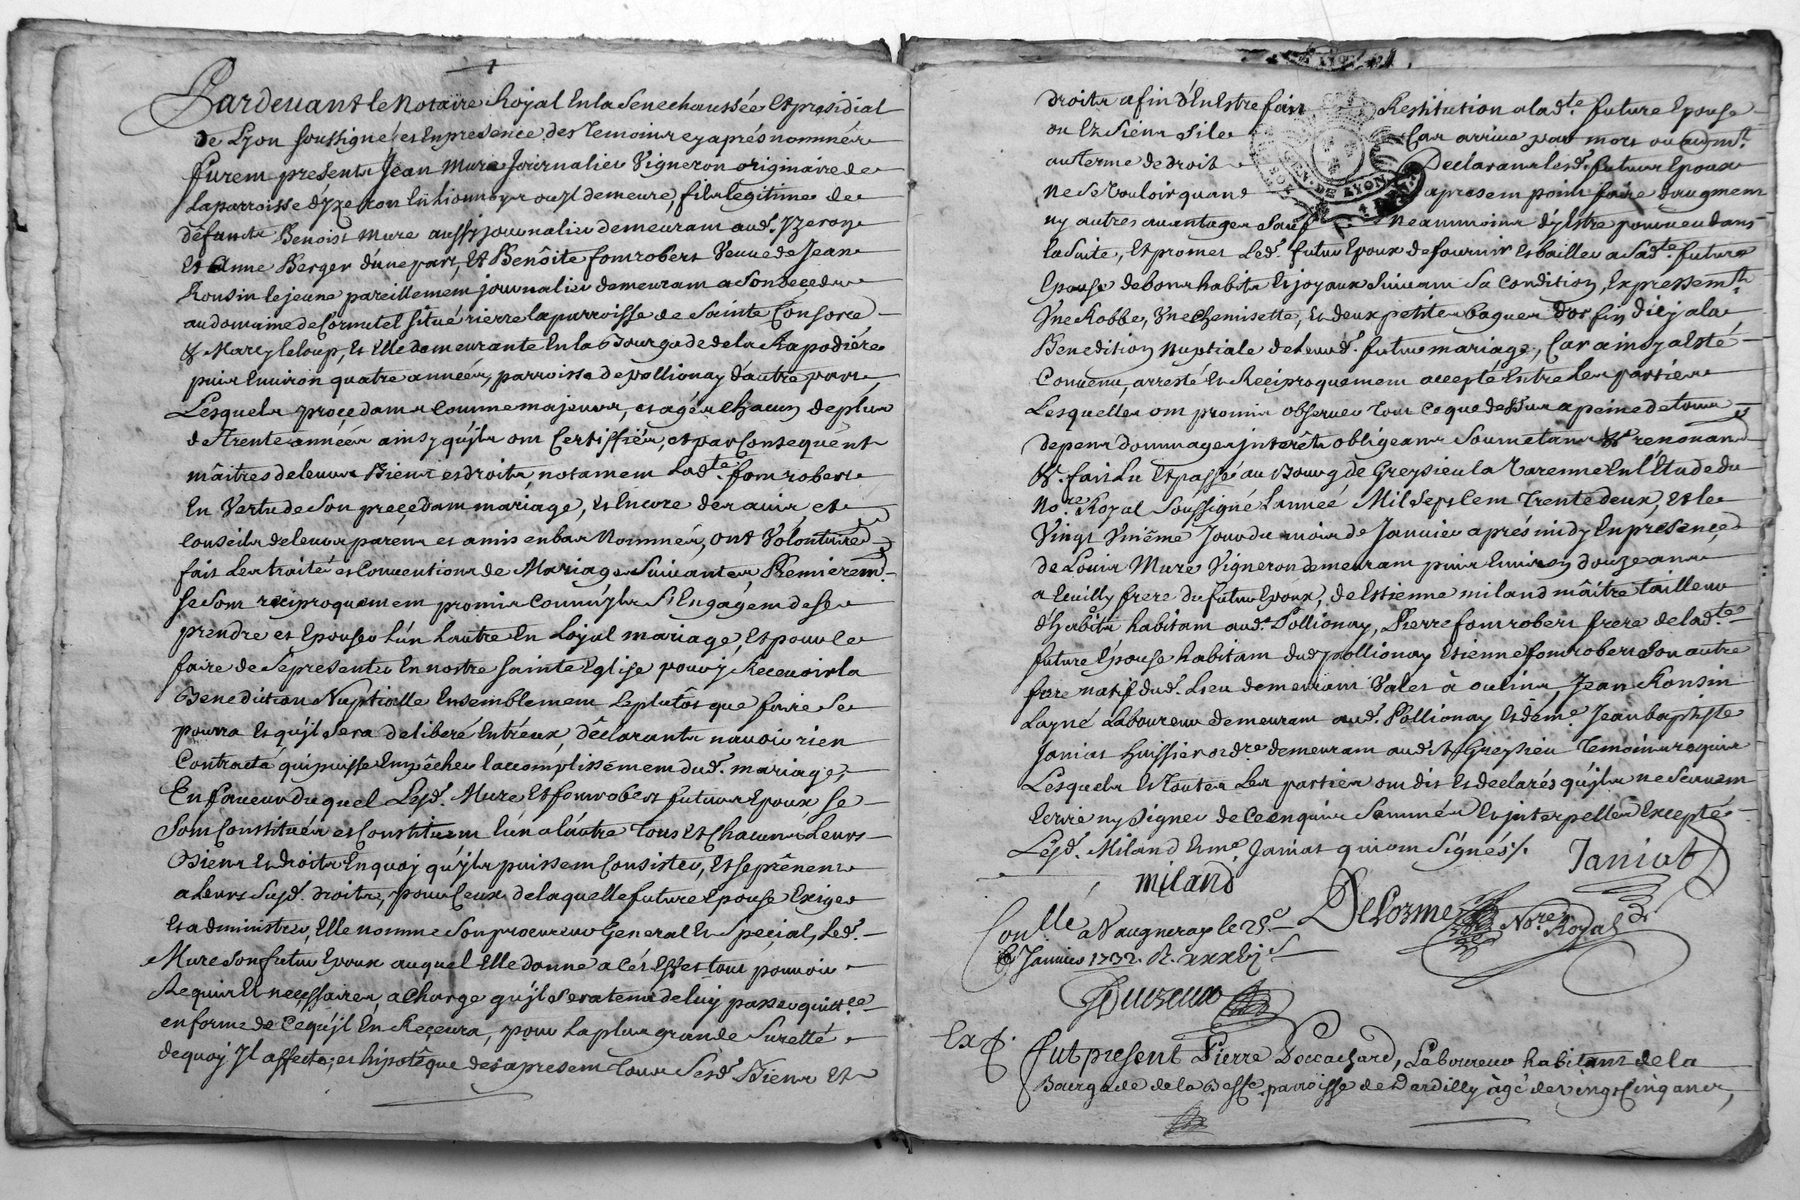 Pardevant le Notaire Royal En la Senechaussée Et presidial
de Lyon soussigné, et En presence des Temoins cy aprés nommés
furent présents Jean Mure Journalier Vigneron originaire de
la parroisse d'Yzeron En Lionnois ou Jl demeure, fils legitime de
défunts Benoist Mure aussy journalier demeurant aud. Yzeron
Et Anne Berger d'une part, Et Benôite fontrobert Veuve de Jean
Ronsin le jeune pareillement journalier demeurant a Son deceds
au domaine de Cornutel Situé rierre la parroisse de Sainte Consorce
& Marcy le loup, Et Elle demeurante En la Bourgade de la Rapodiére
puis Environ quatre années, parroisse de pollionay d'autre part
Lesquels procedants Comme majeurs, et agés chacun de plus
de Trente années ainsy qu'jls ont Certiffiés, et par Consequent
mâitres de leurs Biens et droits, notament Lad.te fontrobert
En Vertu de Son precedant mariage, et Encore des avis et
Conseils de leurs parens et amis en bas Nommés, ont Volontaire.
fait Les traités et Conventions de Mariage Suivantes, Premierem.
se sont reciproquement promis Comm'jls S'Engagent de se
prendre et Epouser L'un L'autre En Loyal mariage, Et pour le
faire de se presenter En nostre Sainte Eglise pour y Recevoir la
Benediction Nuptialle Ensemblement Le plutôt que faire Se
pourra Et qu'jl Sera deliberé Entr'eux, déclarants n'avoir rien
Contracté qui puisse Empêcher l'accomplissement dud. mariage,
En faveur du quel Lesd. Mure Et fontrobert futurs Epoux Se
Sont Constitués et Constituent l'un a l'autre Tous Et Chacuns Leurs
Biens Et droits En quoy qu'jls puissent Consister, Et se prênent
a Leurs Susd. droits, pour Ceux de laquelle future Epouse Exiger
Et administrer, Elle nomme Son procureur General Et Special, Led.
Mure Son futur Epoux auquel Elle donne a cés Effets tous pouvoirs
Requis Et necessaires a Charge qu'jl Sera tenu de luy passer quitt.ce
en forme de Ce qu'jl En Recevra, pour La plus grande Suretté
de quoy Jl affecte, et hipotéque des a present Tous Sesd. Biens Et
droits afin d'En Estre fait Restitution a lad.te future Epouse
ou Et Siens Si le Cas arrive par mort ou autrem.t
au terme de droit Declarants lesd. futurs Epoux
Ne Se Vouloir quant a present point faire d'augment
ny autres avantages Sauf Neammoins d'y Estre pourveu dans
la Suite, Et promet Led. futur Epoux de fournir Et bailler a Sad.te future
Epouse de bons habits Et joyaux Suivant Sa Condition, Expressem.t
Une Robbe, Une Chemisette, et deux petites bagues d'or fin d'icy a la
Benediction Nuptiale de leurd. futur mariage, Car ainsy a Esté
Convenu, arresté Et Reciproquement accepté Entre Les parties
Lesquelles ont promis observer Tout Ce que dessus a peine de tous
depens dommages interêts obligeants Soumetans & renonçans
&. fait Lu Et passé au Bourg de Greysieu la Varenne En l'Etude du
No.re Royal Soussigné L'année Mil Sept Cent Trente deux, et le
Vingt Uniême Jour du mois de Janvier aprés midy En présence
de Louis Mure Vigneron demeurant puis Environ douze ans
a Ecuilly frere du futur Epoux, de Estienne miland mâitre tailleur
d'habits habitant aud. Pollionay, Pierre fontrobert frere de lad.te
future Epouse habitant dud. pollionay Etienne fontrobert Son autre
frere natif dud. Lieu demeurant Valet à oulins, Jean Ronsin
Layné Laboureur demeurant aud. Pollionay Et de m.e Jean baptiste
Janiat huissier ord.re demeurant aud. Greysieu Temoins requis
Lesquels Et Toutes Les parties ont dit Et declarés qu'jls ne Scavent
Ecrire ny Signer de Ce Enquis Sommés Et jnterpellés Excepté
Lesd. Miland Et m.e Janiat qui ont Signés /.
Janiat
miland
DeLorme No.re Royal
Con.lle a Vaugneray le 25.e
Janvier 1732. R. xxx
Ex.p. fut present Pierre Decachard, Laboureur habitant de la
Bourgade de la Besse parroisse de Dardilly âgé de vingt Cinq ans,